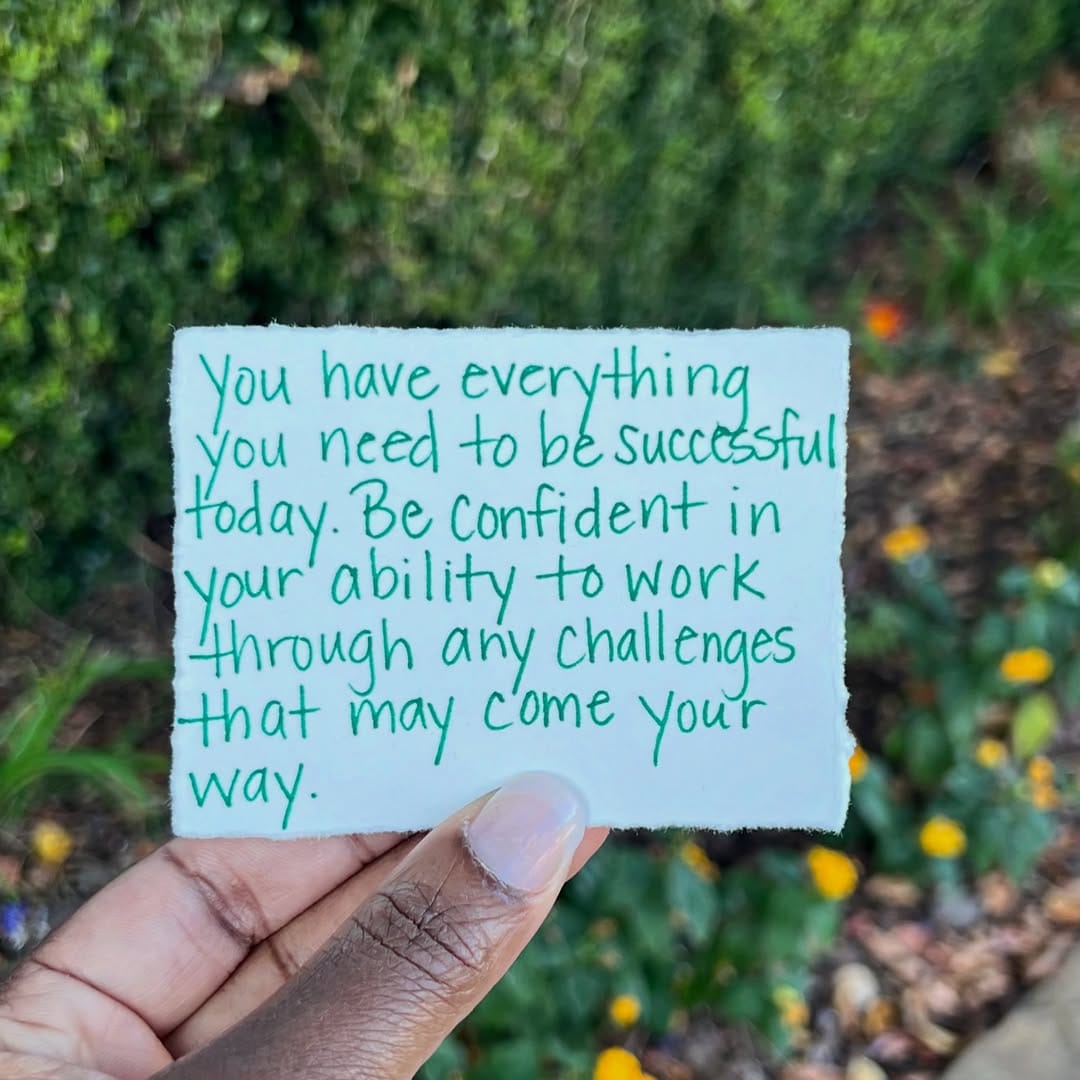 You have everything
you need to be successful
today. Be confident in
your ability to work
through any challenges
that may come your
way.